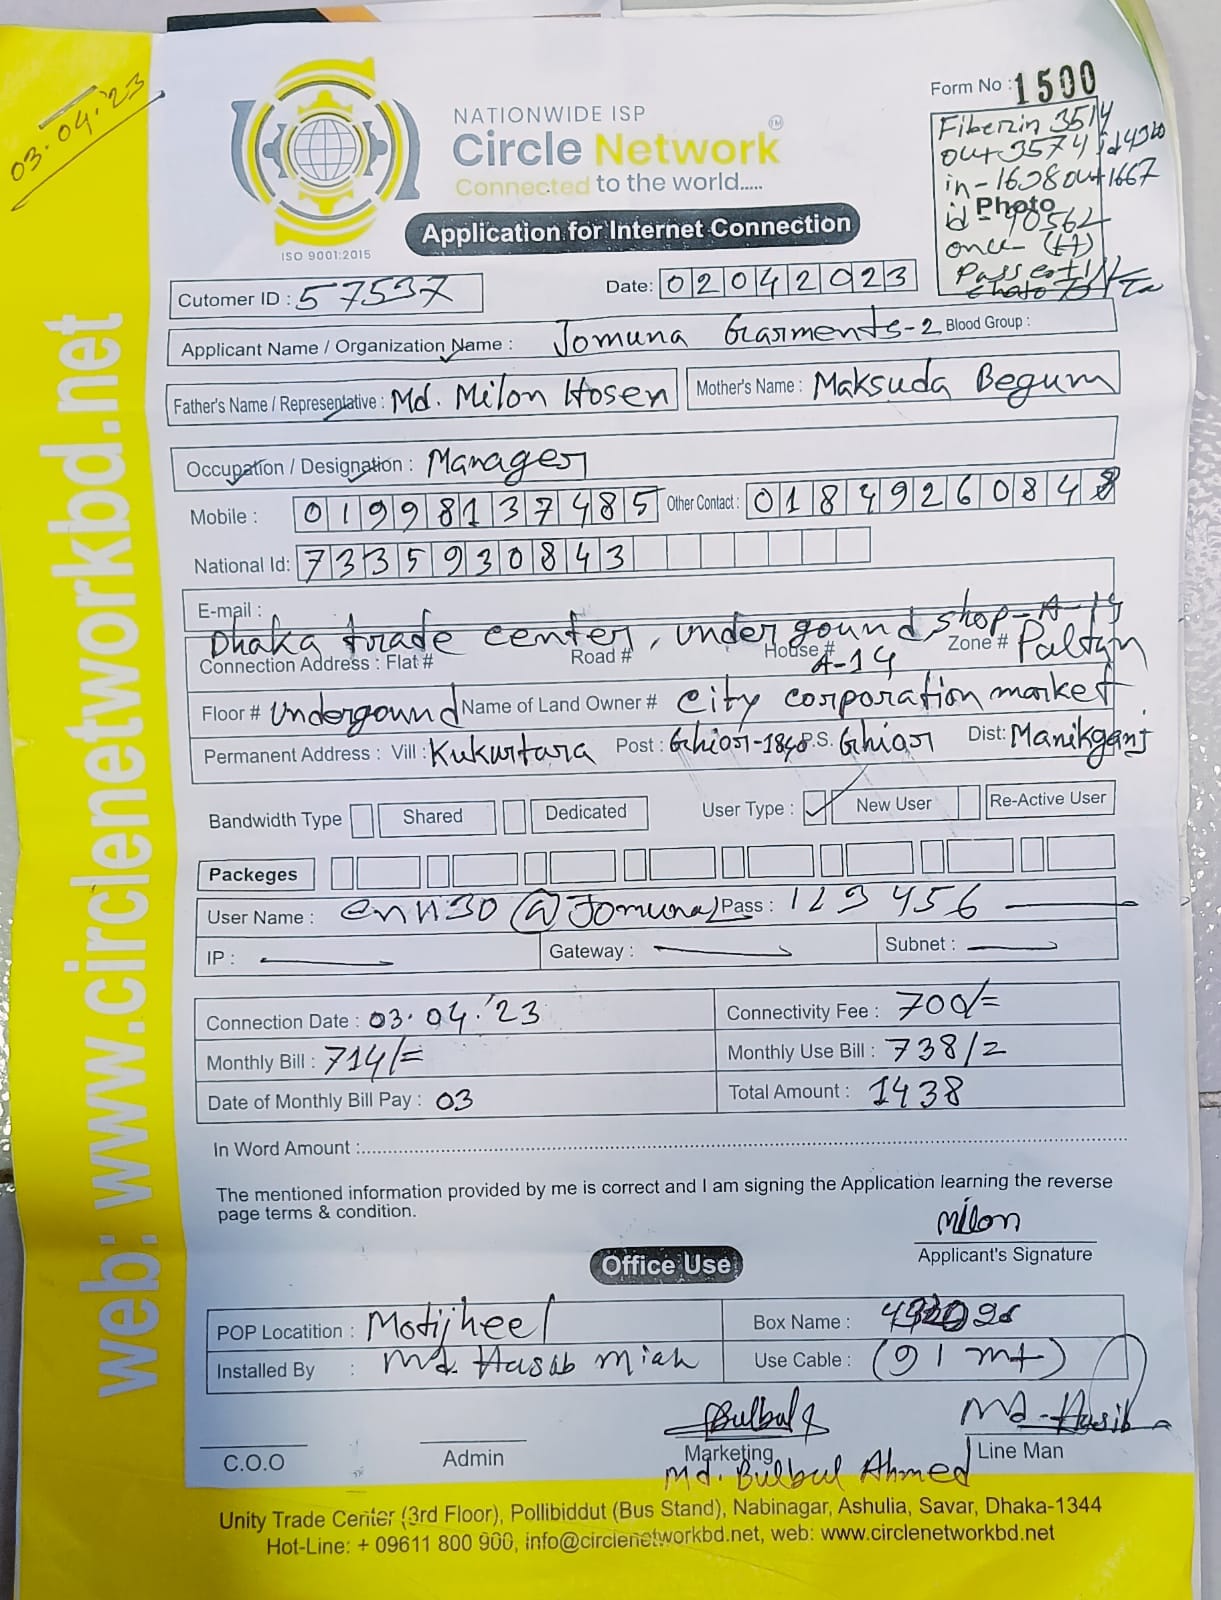 03.04.'23
web: www.circlenetworkbd.net
NATIONWIDE ISP
Circle Network
TM
Connected to the world.....
ISO 9001:2015
Application for Internet Connection
Form No : 1500
Fiber in 3514
out 3574 id 4320
in - 1608 out 1667
Photo
id - 90562
once (11)
Pass
Cutomer ID : 57537
Date: 02042023
Applicant Name / Organization Name : Jomuna Garments-2 Blood Group :
Father's Name / Representative : Md. Milon Hosen Mother's Name : Maksuda Begum
Occupation / Designation : Manager
Mobile : 01998137485 Other Contact : 0184926084
National Id: 7335930843
E-mail :
Dhaka trade center, undergound shop-A-14
Connection Address : Flat # Road # House # A-14 Zone # Paltan
Floor # Undergound Name of Land Owner # City corporation market
Permanent Address : Vill : Kukurtara Post : Ghior-1840 P.S. Ghior Dist: Manikganj
Bandwidth Type Shared Dedicated User Type : New User Re-Active User
Packeges
User Name : cnh30@Jomuna2 Pass : 123456
IP : Gateway : Subnet :
Connection Date : 03.04.'23 Connectivity Fee : 700/=
Monthly Bill : 714/= Monthly Use Bill : 738/=
Date of Monthly Bill Pay : 03 Total Amount : 1438
In Word Amount :
The mentioned information provided by me is correct and I am signing the Application learning the reverse
page terms & condition.
Milon
Applicant's Signature
Office Use
POP Locatition : Motijheel Box Name :
Installed By : Md. Hasib Miah Use Cable : (91 mt)
Bulbul Md-Hasib
C.O.O Admin Marketing Line Man
Md. Bulbul Ahmed
Unity Trade Center (3rd Floor), Pollibiddut (Bus Stand), Nabinagar, Ashulia, Savar, Dhaka-1344
Hot-Line: + 09611 800 900, info@circlenetworkbd.net, web: www.circlenetworkbd.net